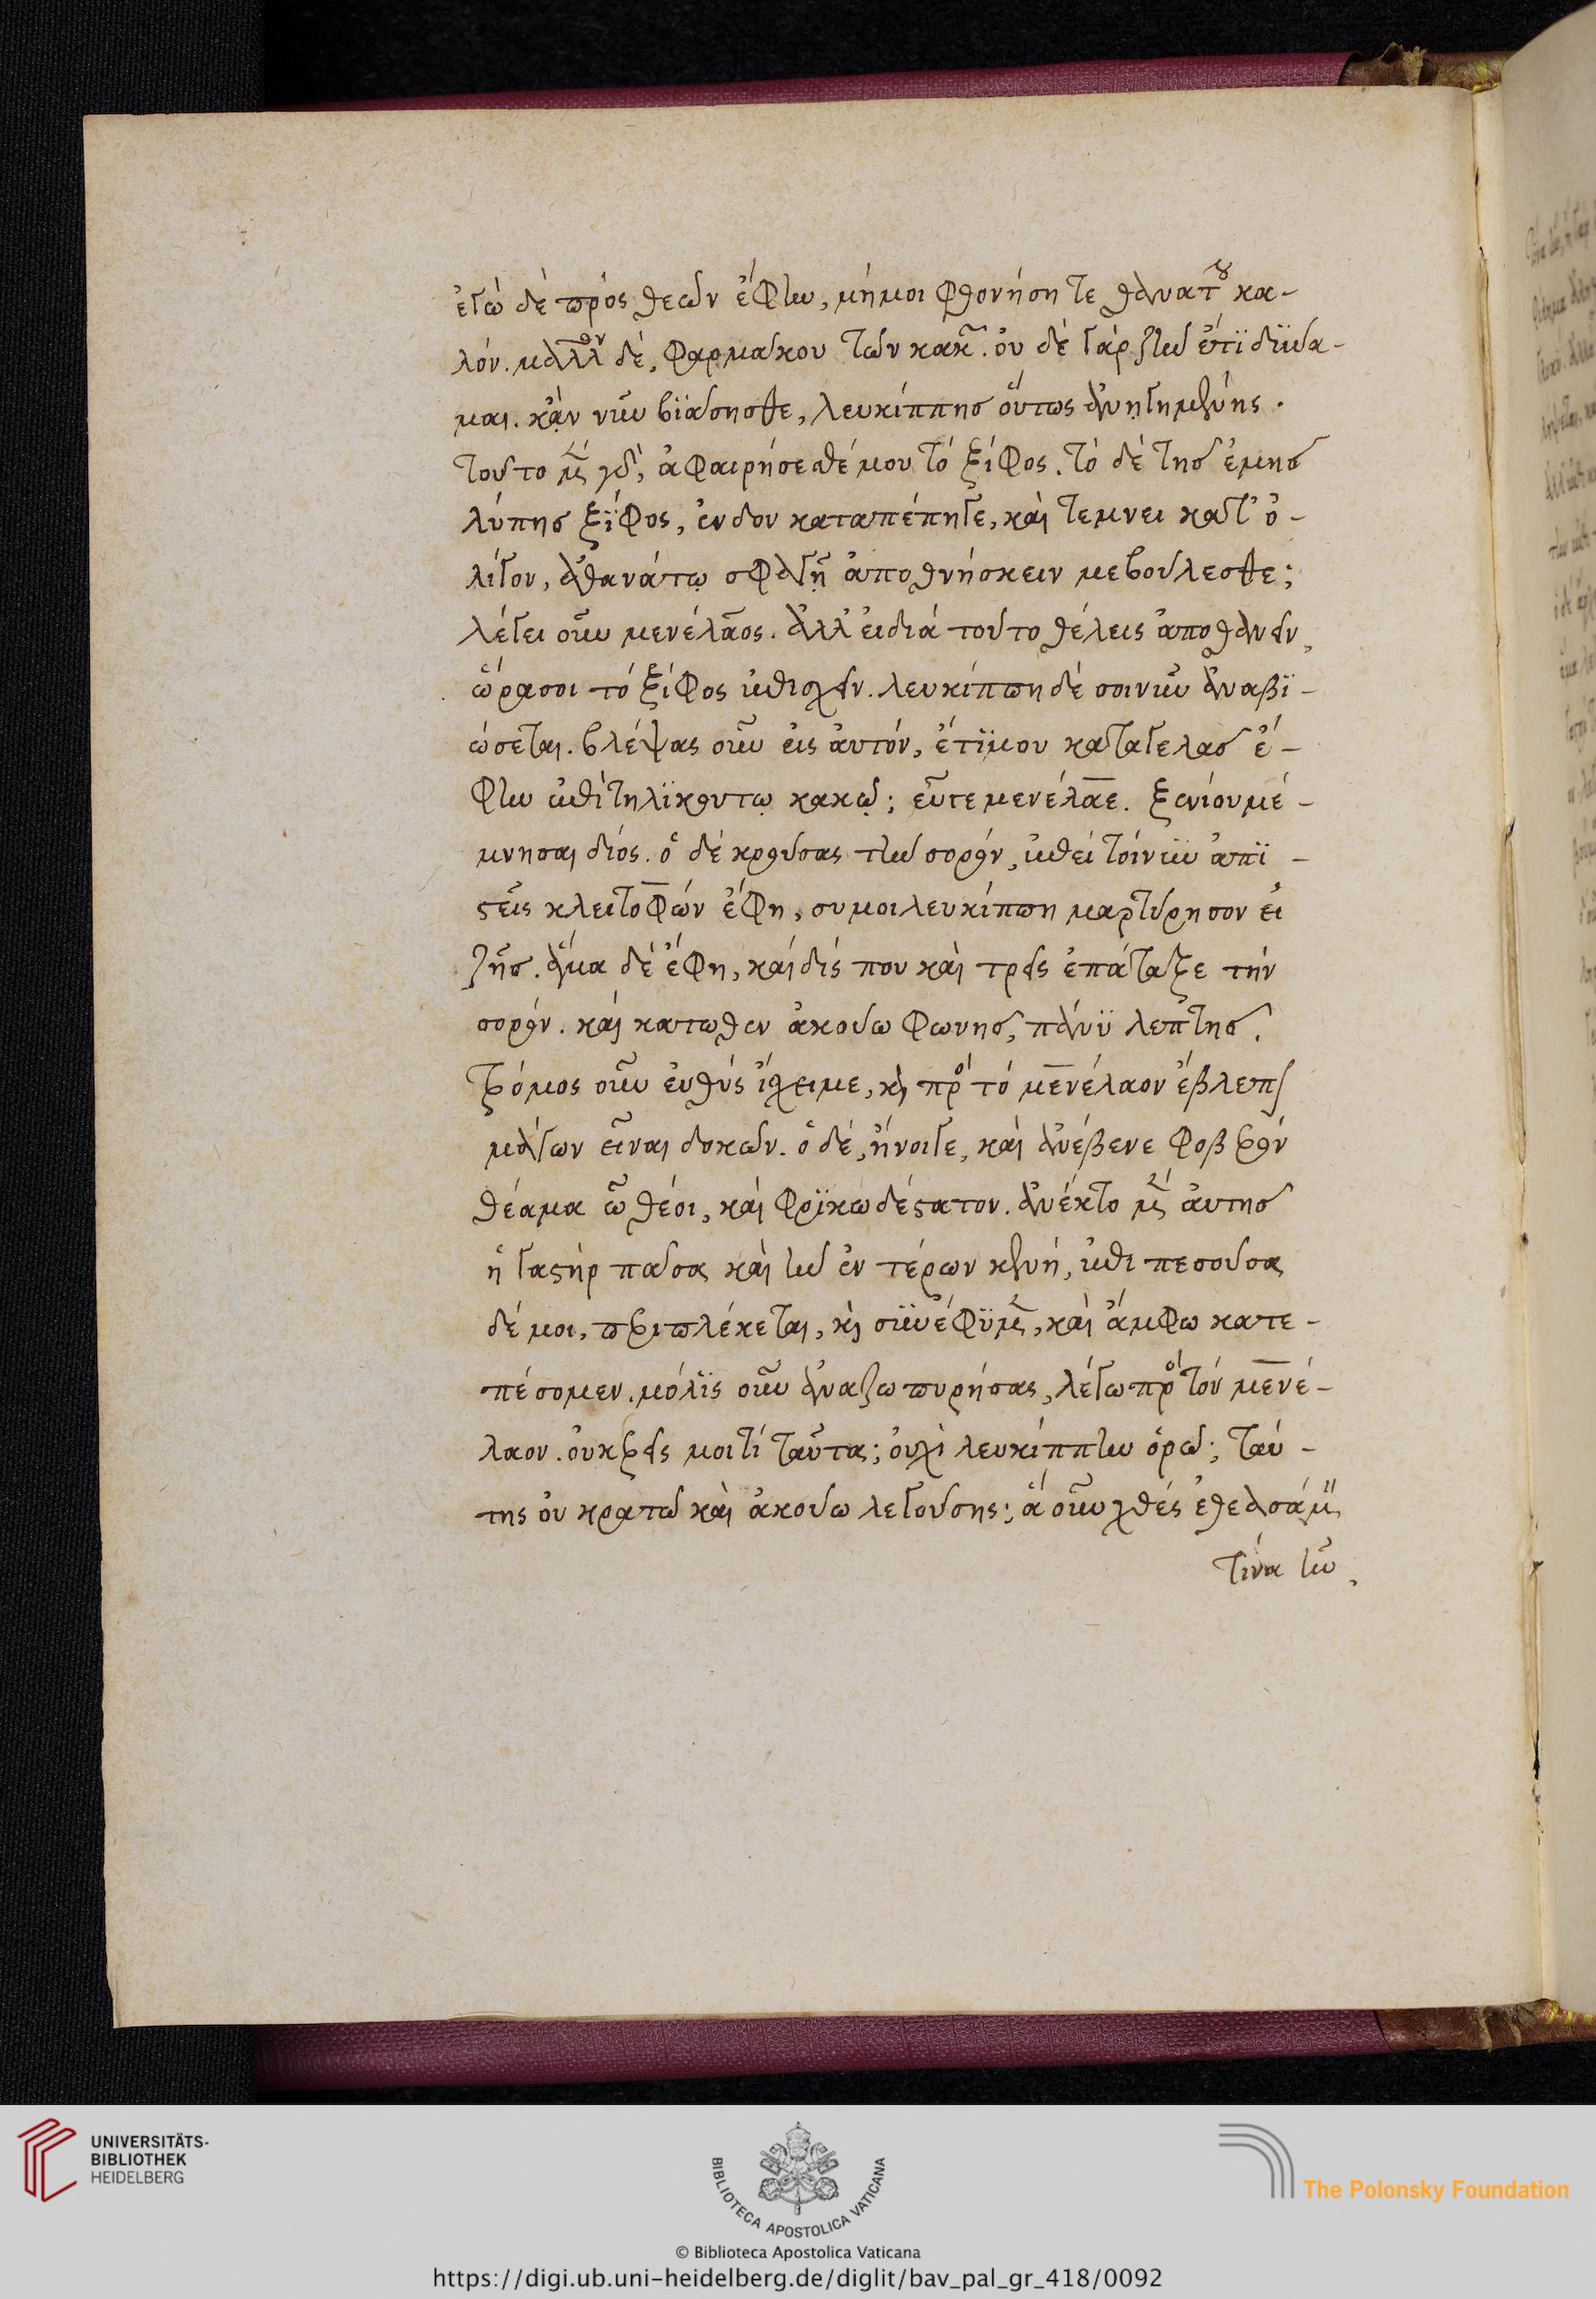 ἐγὼ δὲ πρὸς θεῶν ἔφην, μή μοι φθονήσητε θανάτου κα-
λόν. μᾶλλον δὲ, φαρμάκου τῶν κακῶν. οὐ δὲ γὰρ ζῆν ἔτι δύνα-
μαι. κἂν νῦν βιάσησθε, λευκίππης οὕτως ἀνῃρημένης.
τοῦτο μὲν γὰρ, ἀφαιρήσεσθέ μου τὸ ξίφος. τὸ δὲ τῆς ἐμῆς
λύπης ξίφος, ἔνδον καταπέπηγε, καὶ τέμνει κατ' ὀ-
λίγον, ἀθανάτῳ σφαγῇ ἀποθνήσκειν με βούλεσθε;
λέγει οὖν μενέλαος. ἀλλ' εἰ διὰ τοῦτο θέλεις ἀποθανεῖν,
ὥρα σοι τὸ ξίφος ἐπισχεῖν. λευκίππη δέ σοι νῦν ἀναβι-
ώσεται. βλέψας οὖν εἰς αὐτὸν, ἔτι μου καταγελᾷς ἔ-
φην ἐπὶ τηλικούτῳ κακῷ; εὖγε μενέλαε. ξενίου μέ-
μνησαι διός. ὁ δὲ κρούσας τὴν σορόν, ἐπεὶ τοίνυν ἀπι-
στεῖς κλειτοφῶν ἔφη, σύ μοι λευκίππη μαρτύρησον εἰ
ζῇς. ἅμα δὲ ἔφη, καὶ δίς που καὶ τρεῖς ἐπάταξε τὴν
σορόν. καὶ κάτωθεν ἀκούω φωνῆς, πάνυ λεπτῆς.
τρόμος οὖν εὐθὺς ἴσχει με, καὶ πρὸς τὸ μενέλαον ἔβλεπον
μάγον εἶναι δοκῶν. ὁ δὲ, ἤνοιγε, καὶ ἀνέβενε φοβερὸν
θέαμα ὦ θέοι, καὶ φρικωδέστατον. ἀνέῳκτο μὲν αὐτῆς
ἡ γαστὴρ πᾶσα καὶ ἦν ἐντέρων κενή, ἐπιπεσοῦσα
δέ μοι, περιπλέκεται, καὶ συνέφυμεν, καὶ ἄμφω κατε-
πέσομεν. μόλις οὖν ἀναζωπυρήσας, λέγω πρὸς τὸν μενέ-
λαον. οὐκ ἐρεῖς μοι τί ταῦτα; οὐχὶ λευκίππην ὁρῶ; ταύ-
της οὐ κρατῶ καὶ ἀκούω λεγούσης; ἃ οὖν χθὲς ἐθεασάμην
τίνα ἦν,
UNIVERSITÄTS-
BIBLIOTHEK
HEIDELBERG
BIBLIOTECA APOSTOLICA VATICANA
The Polonsky Foundation
© Biblioteca Apostolica Vaticana
https://digi.ub.uni-heidelberg.de/diglit/bav_pal_gr_418/0092